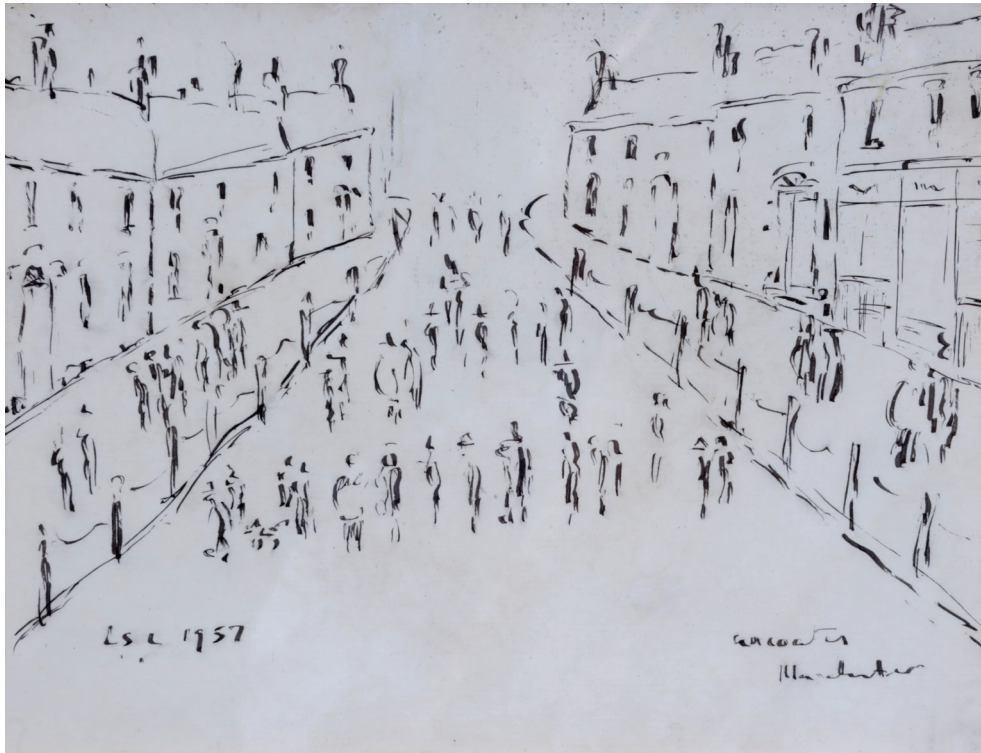 LSL 1957
Ancoats
Manchester